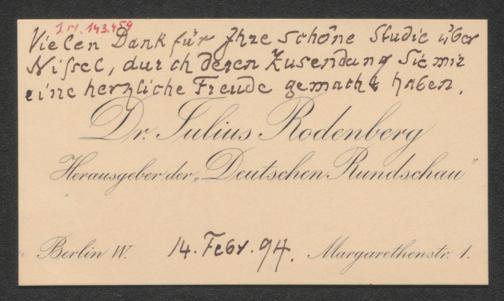 I.N. 143.459
Vielen Dank für Ihre schöne Studie über
Nissel, durch deren Zusendung Sie mir
eine herzliche Freude gemacht haben.
Dr. Julius Rodenberg
Herausgeber der „Deutschen Rundschau“
Berlin W. 14. Febr. 94. Margarethenstr. 1.